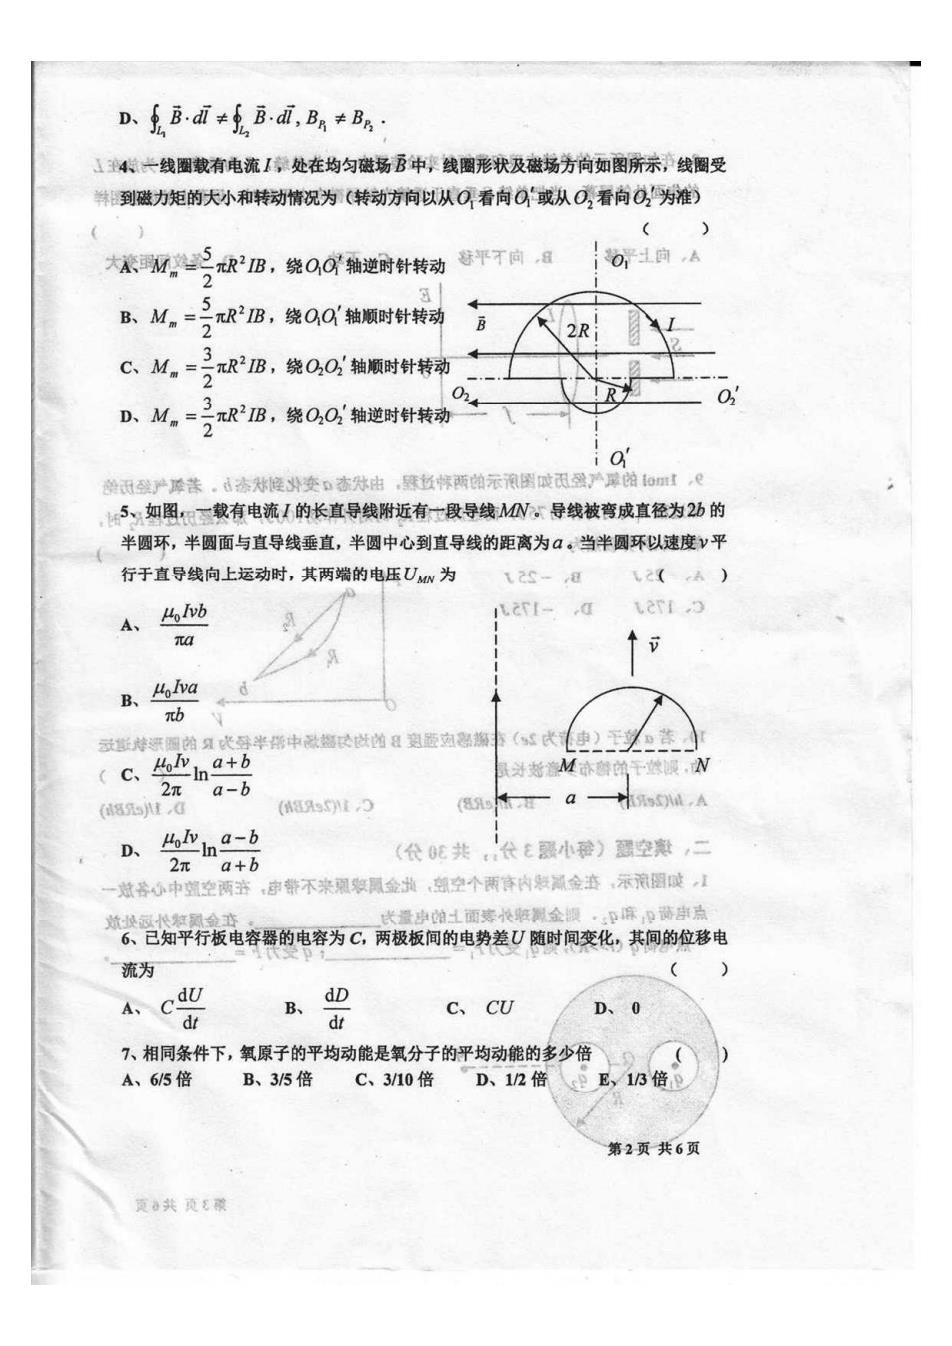 D、∮_{L₁} B⃗·dl⃗ ≠ ∮_{L₂} B⃗·dl⃗, B_{P₁} ≠ B_{P₂} .
4、一线圈载有电流 I，处在均匀磁场 B⃗ 中，线圈形状及磁场方向如图所示，线圈受
到磁力矩的大小和转动情况为（转动方向以从O₁看向O₁′或从O₂看向O₂′为准）
（ ）
A、M_m = 5/2 πR²IB，绕O₁O₁′轴逆时针转动
B、M_m = 5/2 πR²IB，绕O₁O₁′轴顺时针转动
C、M_m = 3/2 πR²IB，绕O₂O₂′轴顺时针转动
D、M_m = 3/2 πR²IB，绕O₂O₂′轴逆时针转动
O₁
B⃗
2R
I
O₂
R
O₂′
O₁′
5、如图，一载有电流 I 的长直导线附近有一段导线 MN。导线被弯成直径为 2b 的
半圆环，半圆面与直导线垂直，半圆中心到直导线的距离为 a。当半圆环以速度 v 平
行于直导线向上运动时，其两端的电压 U_{MN} 为 （ ）
A、 μ₀Ivb/πa
B、 μ₀Iva/πb
C、 μ₀Iv/2π ln (a+b)/(a−b)
D、 μ₀Iv/2π ln (a−b)/(a+b)
v⃗
M
N
a
6、已知平行板电容器的电容为 C，两极板间的电势差 U 随时间变化，其间的位移电
流为 （ ）
A、 C dU/dt B、 dD/dt C、 CU D、 0
7、相同条件下，氧原子的平均动能是氧分子的平均动能的多少倍 （ ）
A、6/5 倍 B、3/5 倍 C、3/10 倍 D、1/2 倍 E、1/3 倍
第 2 页 共 6 页